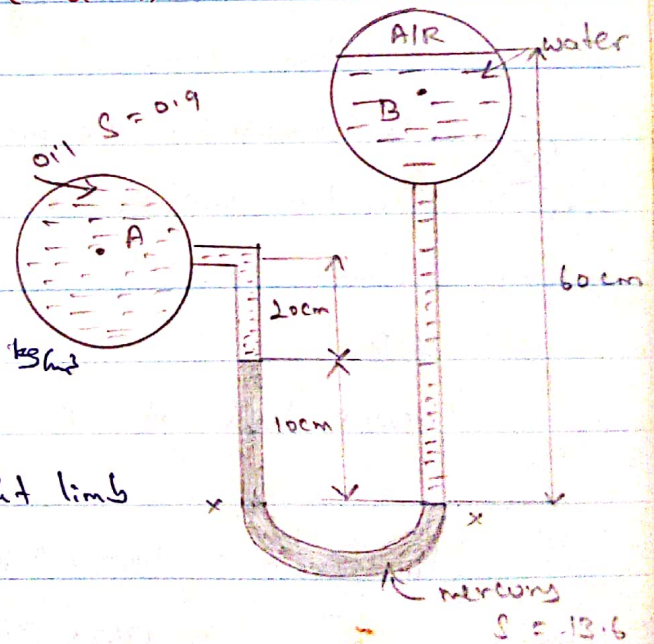 AIR
water
B
oil S = 0.9
A
20cm
60cm
kg/m3
10cm
limb
x
x
mercury
S = 13.6